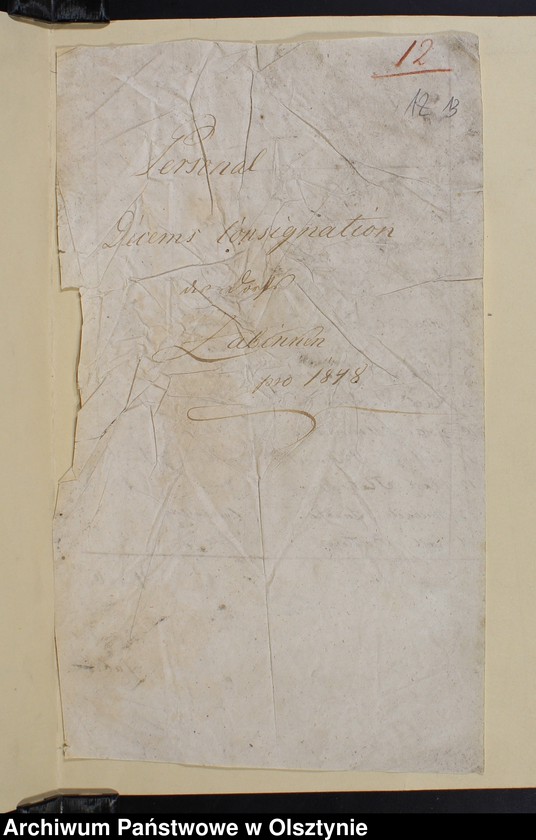 12
12 13
Personal
Decems Consignation
des Dorfs
Labinnen
pro 1848
Archiwum Państwowe w Olsztynie